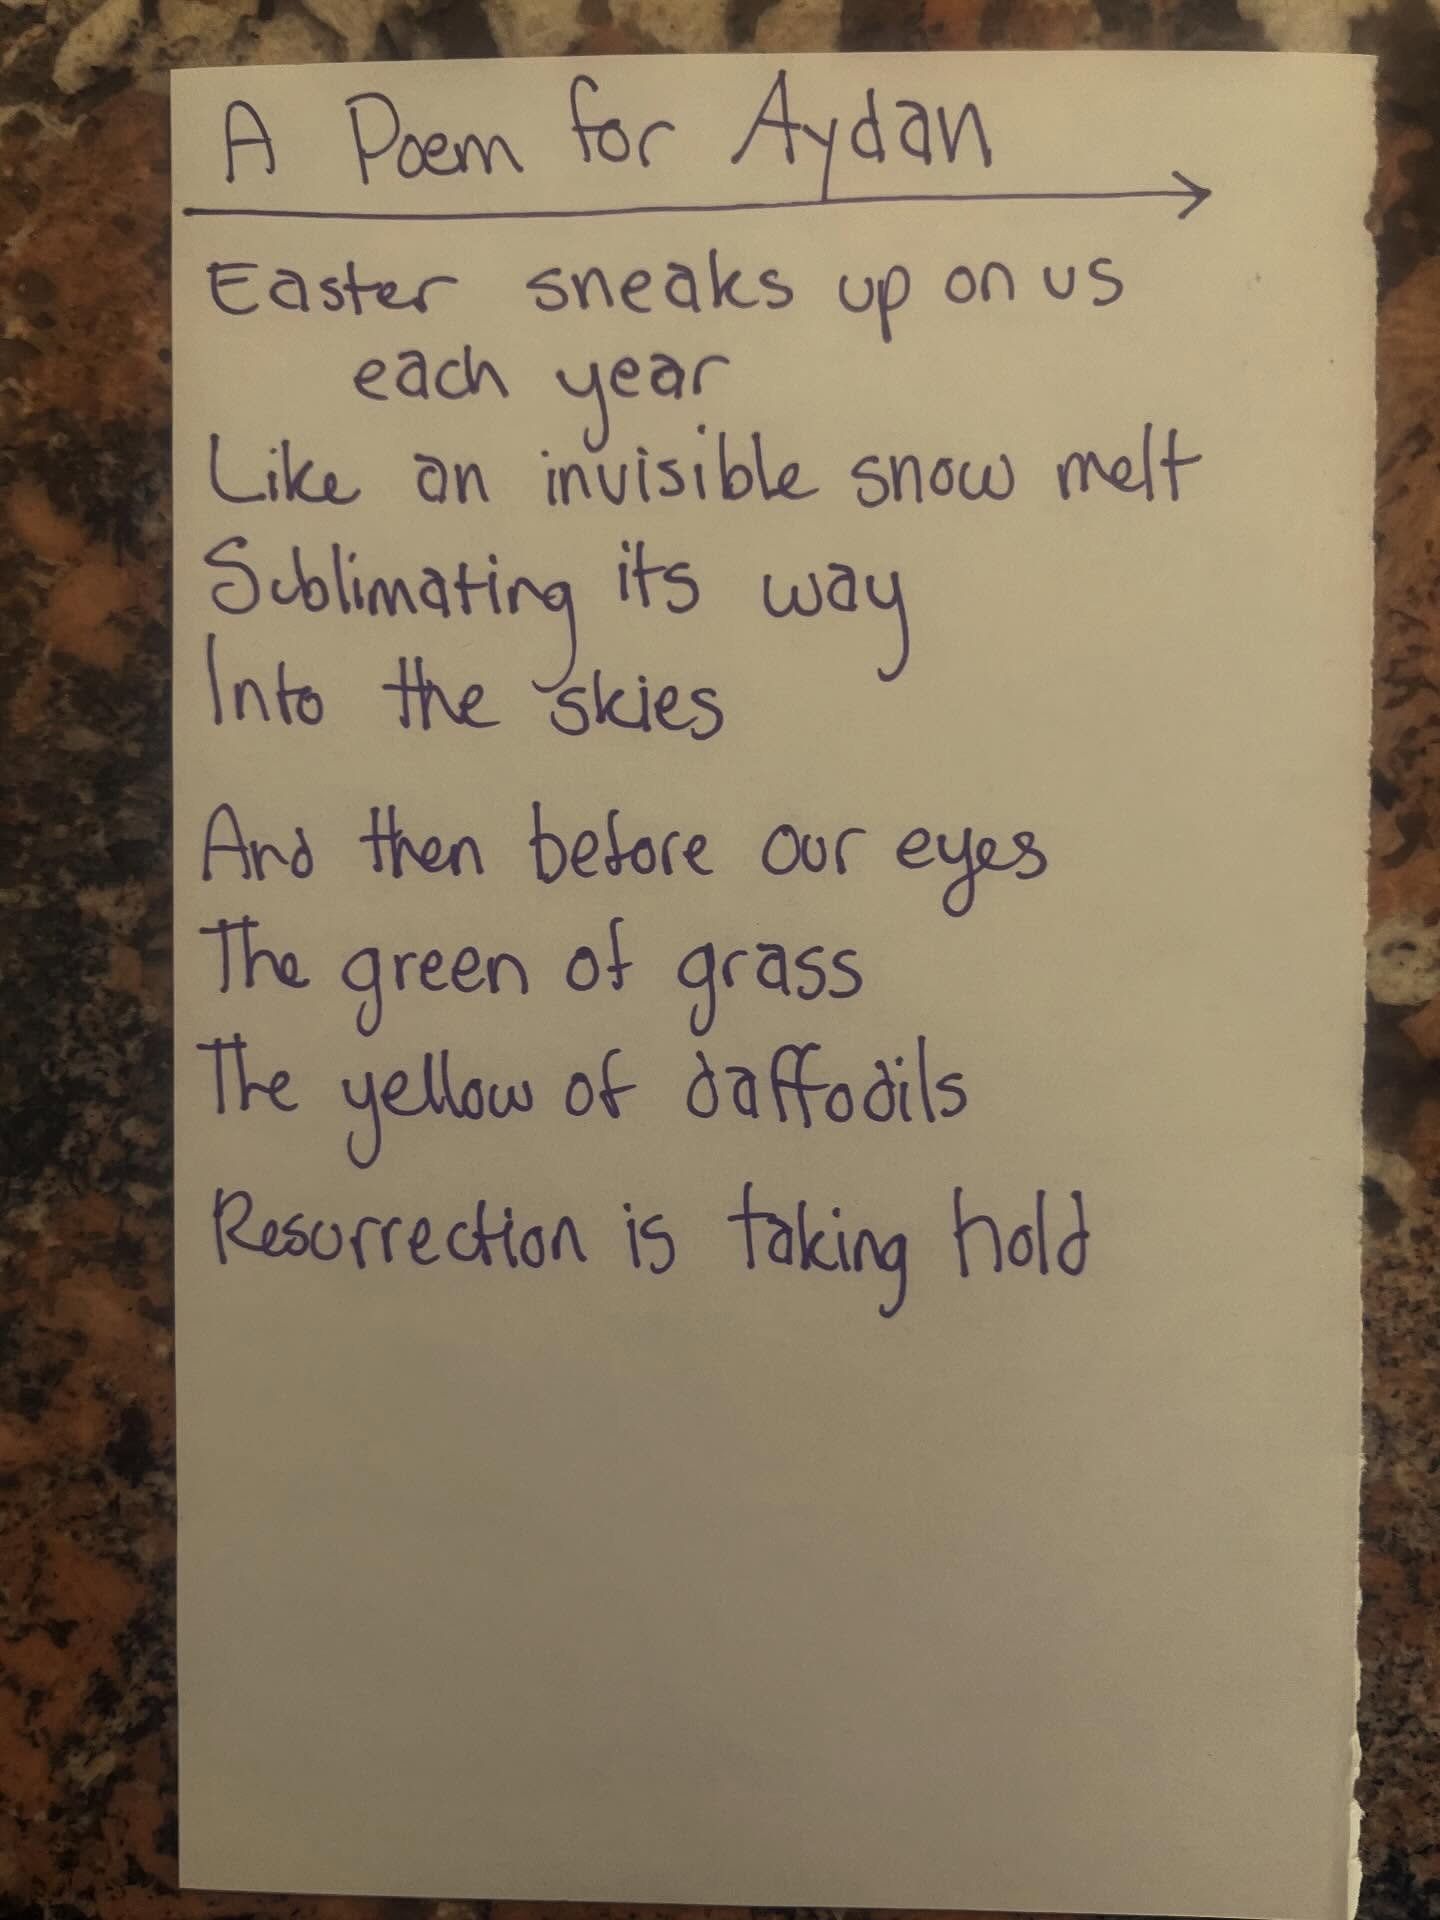 A Poem for Aydan
Easter sneaks up on us
each year
Like an invisible snow melt
Sublimating its way
Into the skies
And then before our eyes
The green of grass
The yellow of daffodils
Resurrection is taking hold